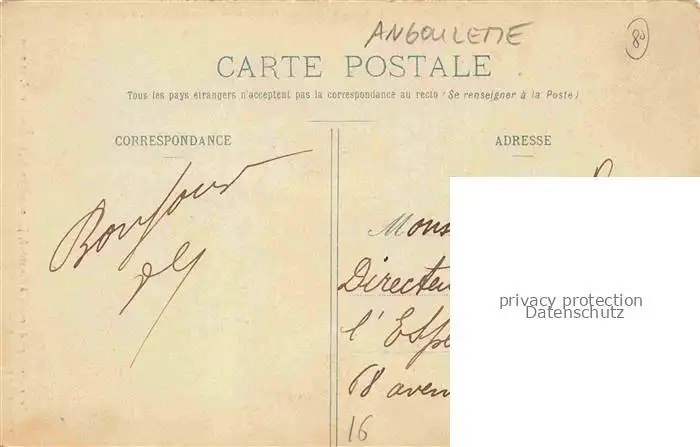 ANGOULEME
80
CARTE POSTALE
Tous les pays étrangers n'acceptent pas la correspondance au recto (Se renseigner à la Poste)
CORRESPONDANCE
ADRESSE
Bonjour
Mons
Directeu
l'Espe
68 aven
16
privacy protection
Datenschutz